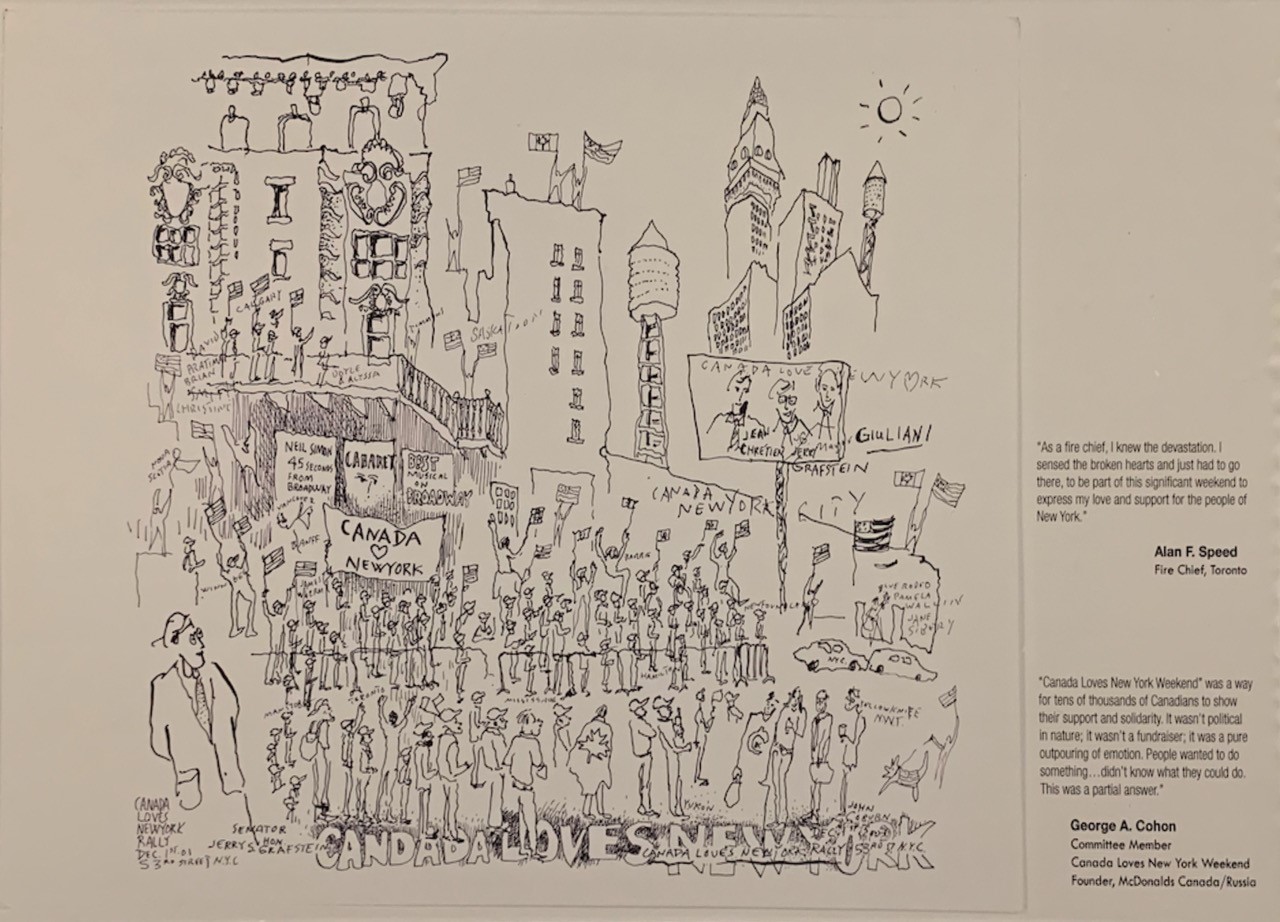 CALGARI
SASKATOON
DAVID
PRATIMA
BRIAN
DOYLE
& ALYSSA
CHRISTINE
NOVA
SCOTIA
CANADA LOVE EWYORK
JEAN
CHRETIEN
JERRY
GRAFSTEIN
GIULIANI
NEIL SIMON
45 SECONDS
FROM
BROADWAY
CABARET
BEST
MUSICAL
ON
BROADWAY
VANCOUVER
BANFF
CANADA
NEWYORK
CANADA
NEWYORK
CITY
BARRIE
NEWFOUNDLA
BLUE RODEO
& PAMELA
WALLIN
JANE
NYC
HAMILTON
TORONTO
YELLOWKNIFE
NWT.
YUKON
CANADA
LOVES
NEWYORK
RALLY
DEC 1ST.01
53RD STREET N.Y.C
SENATOR
JERRY S HON
GRAFSTEIN
CANDADA LOVES NEW YORK
CANADA LOVES NEWYORK RALLY 53RD ST N.Y.C
JOHN
"As a fire chief, I knew the devastation. I
sensed the broken hearts and just had to go
there, to be part of this significant weekend to
express my love and support for the people of
New York."
Alan F. Speed
Fire Chief, Toronto
"Canada Loves New York Weekend" was a way
for tens of thousands of Canadians to show
their support and solidarity. It wasn't political
in nature; it wasn't a fundraiser; it was a pure
outpouring of emotion. People wanted to do
something...didn't know what they could do.
This was a partial answer."
George A. Cohon
Committee Member
Canada Loves New York Weekend
Founder, McDonalds Canada/Russia